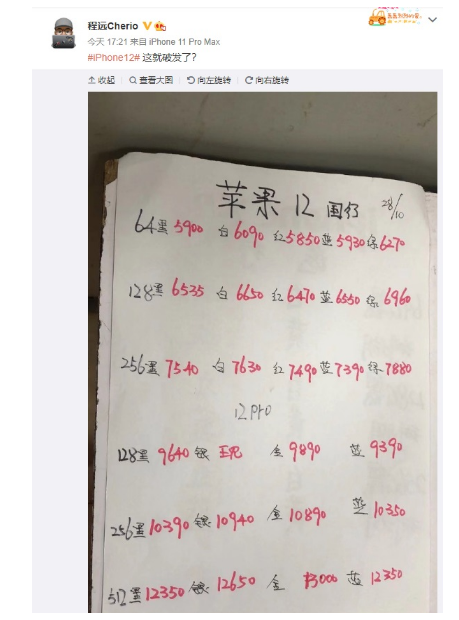 程远Cherio
今天 17:21 来自 iPhone 11 Pro Max
#iPhone12# 这就破发了？
收起 查看大图 向左旋转 向右旋转
苹果 12 国行 28/10
64黑 5900 白 6090 红 5850 蓝 5930 绿 6270
128黑 6535 白 6650 红 6470 蓝 6550 绿 6960
256黑 7540 白 7630 红 7490 蓝 7390 绿 7880
12pro
128黑 9640 银 金 9890 蓝 9390
256黑 10390 银 10940 金 10890 蓝 10350
512黑 12350 银 12650 金 13000 蓝 12350